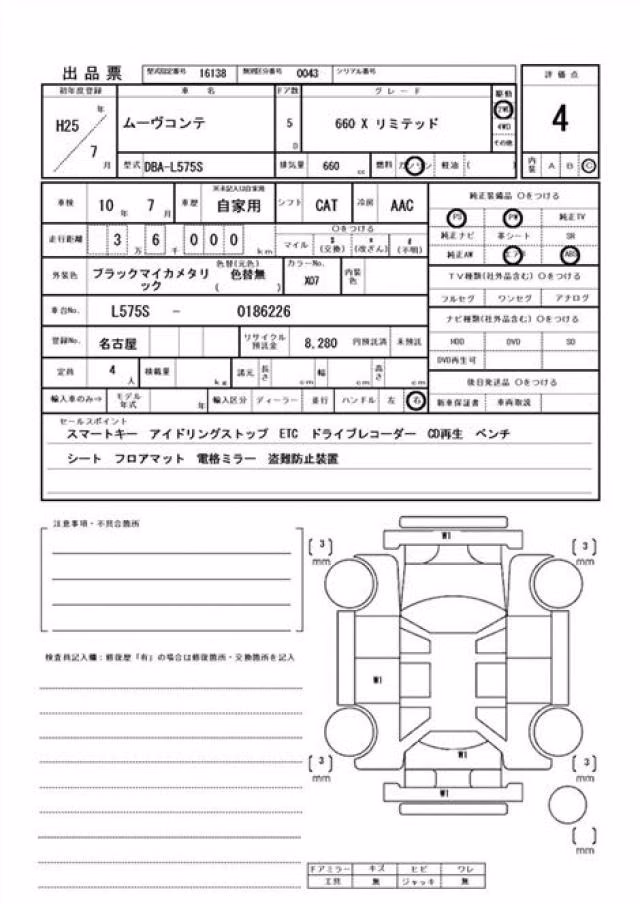 出品票 型式指定番号 16138 類別区分番号 0043 シリアル番号
初年度登録 車名 ドア数 グレード 駆動 評価点
H25 年 ムーヴコンテ 5 D 660 X リミテッド 2WD 4WD その他 4
7 月 型式 DBA-L575S 排気量 660 cc 燃料 ガソリン 軽油 ( ) 内装 A B C
車検 10 年 7 月 車歴 ※未記入は自家用 自家用 シフト CAT 冷房 AAC 純正装備品 〇をつける
PS PW 純正TV
走行距離 3 万 6 千 0 0 0 km 〇をつける
マイル $ (交換) * (改ざん) # (不明) 純正ナビ 革シート SR
純正AW エアB ABS
外装色 ブラックマイカメタリック 色替(元色) 色替無 ( ) カラーNo. X07 内装色
TV種類(社外品含む) 〇をつける
フルセグ ワンセグ アナログ
車台No. L575S - 0186226
ナビ種類(社外品含む) 〇をつける
登録No. 名古屋 リサイクル預託金 8,280 円預託済 未預託 HDD DVD SD
DVD再生可
定員 4 人 積載量 kg 諸元 長さ cm 幅 cm 高さ cm
後日発送品 〇をつける
輸入車のみ⇒ モデル年式 年 輸入区分 ディーラー 並行 ハンドル 左 右 新車保証書 車両取説
セールスポイント
スマートキー アイドリングストップ ETC ドライブレコーダー CD再生 ベンチ
シート フロアマット 電格ミラー 盗難防止装置
注意事項・不具合箇所
検査員記入欄:修復歴「有」の場合は修復箇所・交換箇所を記入
W1
[ 3 ] mm
[ 3 ] mm
W1
W1
[ 3 ] mm
[ 3 ] mm
W1
[ ] mm
ドアミラー キズ ヒビ ワレ
工具 無 ジャッキ 無